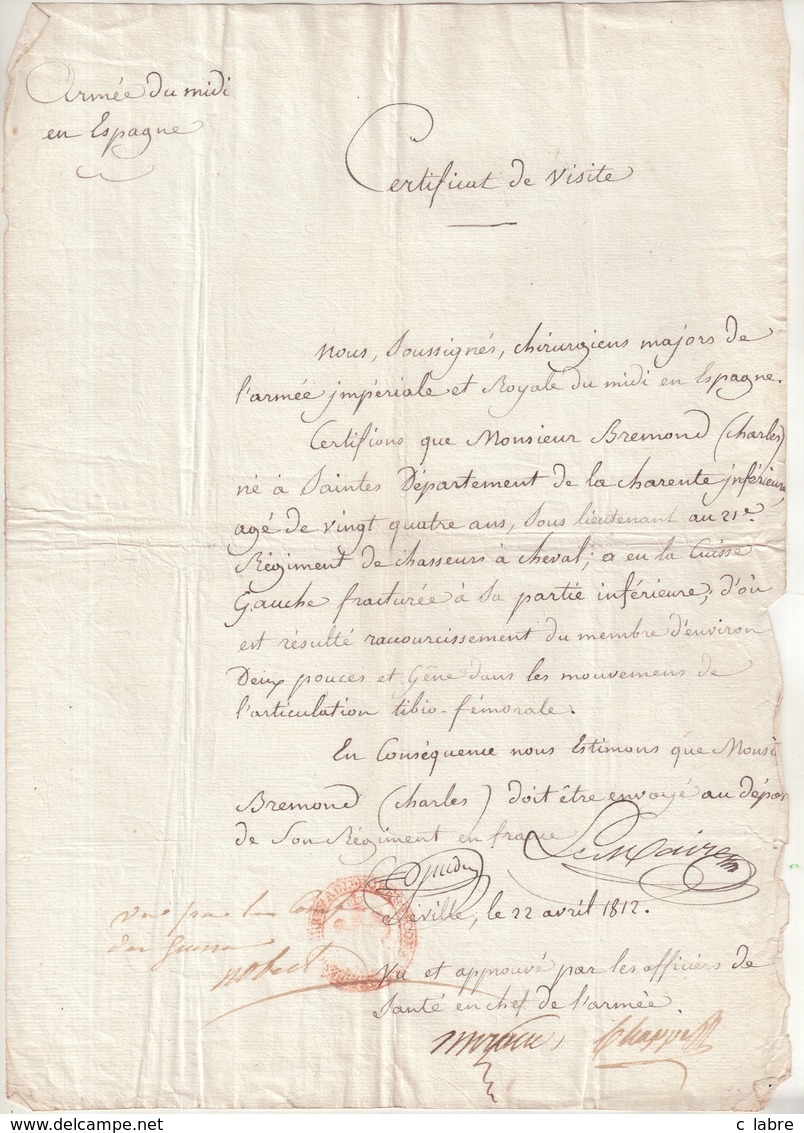 Armée du midi
en Espagne
Certificat de Visite
Nous, Soussignés, chirurgiens majors de
l'armée jmpériale et Royale du midi en Espagne.
Certifions que Monsieur Bremond (Charles)
né à Saintes Département de la charente jnférieure,
agé de vingt quatre ans, Sous lieutenant au 21e.
Régiment de chasseurs à cheval; a eu la Cuisse
Gauche fracturée à Sa partie inférieure; d'où
est résulté racourcissement du membre d'environ
Deux pouces et Gêne dans les mouvemens de
l'articulation tibio-fémorale.
En Conséquence nous Estimons que Monsr
Bremond (Charles) doit être envoyé au dépot
de Son Régiment en france
LeMaire
Séville, le 22 avril 1812.
vu par le
des Guerres
Vu et approuvé par les officiers de
Santé en chef de l'armée.
c labre